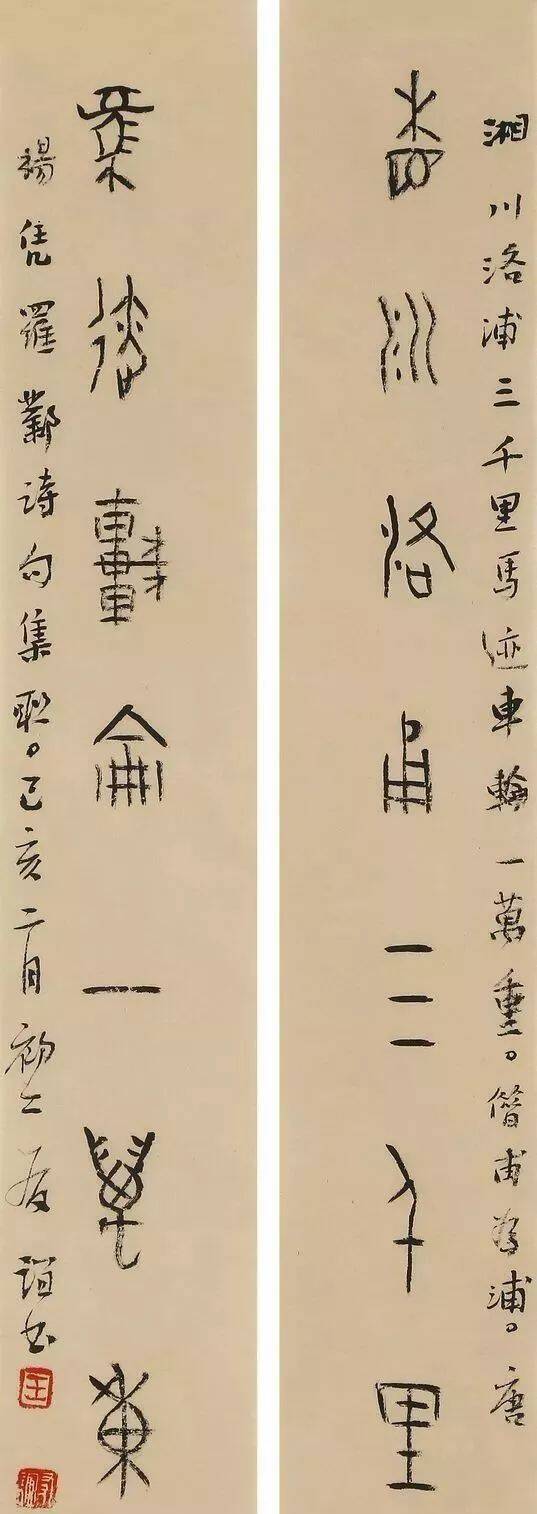 湘川洛浦三千里馬迹車輪一萬重。借甫為浦。唐
湘川洛甫三千里
馬迹車侖一萬重
楊凭羅鄴詩句集聯。己亥二月初二友誼書
王
友誼